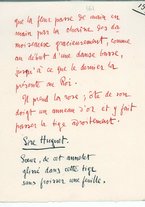 15
que la fleur passe de main en
main par la chaîne des da
moiseaux gracieusement, comme
au début d'une danse basse,
jusqu'à ce que le dernier la
présente au Roi.
Il prend la rose, ôte de son
doigt un anneau d'or et y fait
passer la tige adroitement.
Sire Huguet.
Sœur, de cet annelet
glissé dans cette tige
sans froisser une feuille,